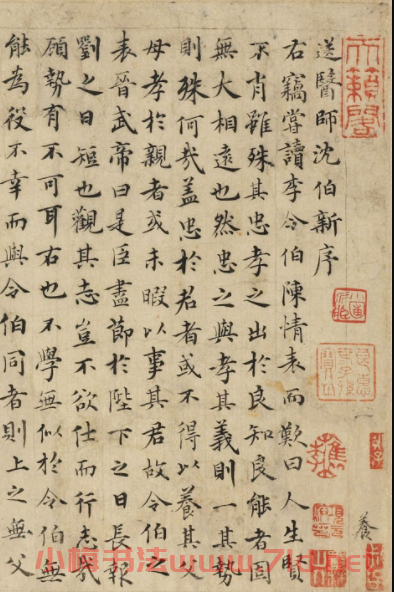 天籟閣
養
送醫師沈伯新序
右竊嘗讀李令伯陳情表而歎曰人生賢
不肖雖殊其忠孝之出於良知良能者固
無大相遠也然忠之與孝其義則一其勢
則殊何哉蓋忠於君者或不得以養其父
母孝於親者或未暇以事其君故令伯之
表晉武帝曰是臣盡節於陛下之日長報
劉之日短也觀其志豈不欲仕而行志哉
顧勢有不可耳右也不學無似於令伯無
能為役不幸而與令伯同者則上之無父